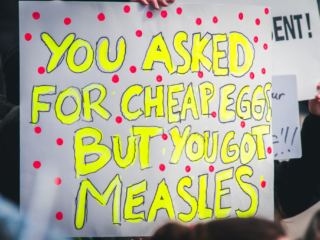 YOU ASKED
FOR CHEAP EGGS
BUT YOU GOT
MEASLES
ENT!
!!